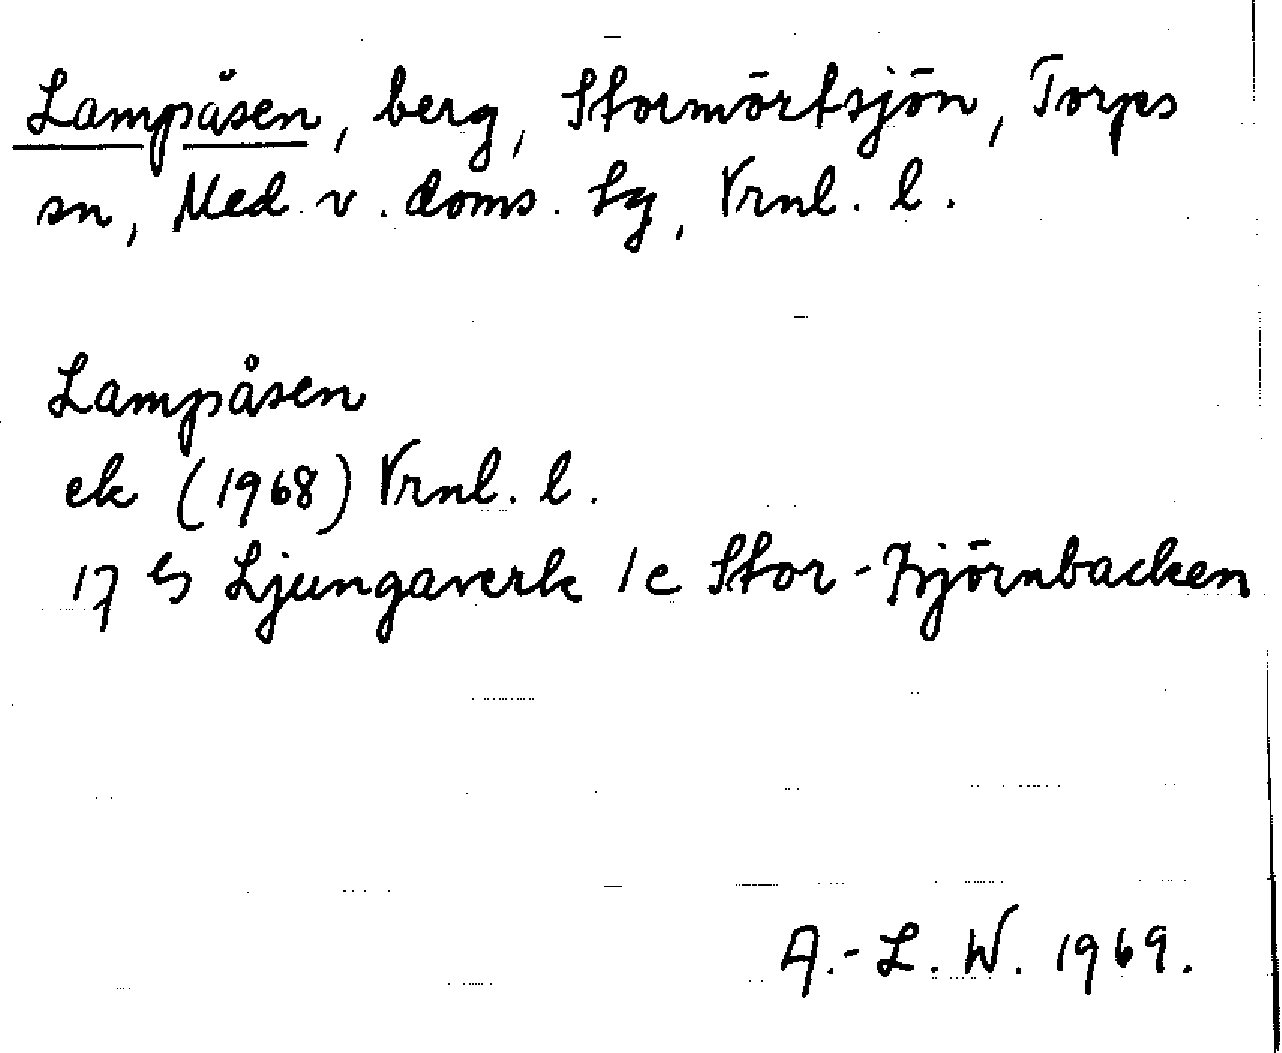 Lampåsen, berg, Stormörtsjön, Torps
sn, Med. v. doms. tg, Vrnl. l.
Lampåsen
ek (1968) Vrnl. l.
17 G Ljungaverk 1c Stor-Björnbacken
A.-L. W. 1969.